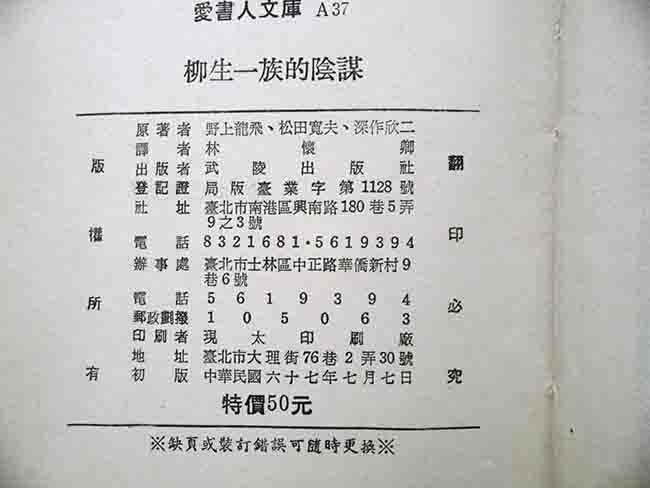 愛書人文庫 A37
柳生一族的陰謀
版權所有
原著者 野上龍飛、松田寬夫、深作欣二
譯者 林懷卿
出版者 武陵出版社
登記證 局版臺業字第1128號
社址 臺北市南港區興南路180巷5弄
9之3號
電話 8321681·5619394
辦事處 臺北市士林區中正路華僑新村9
巷6號
電話 5619394
郵政劃撥 105063
印刷者 現太印刷廠
地址 臺北市大理街76巷2弄30號
初版 中華民國六十七年七月七日
翻印必究
特價50元
※缺頁或裝訂錯誤可隨時更換※